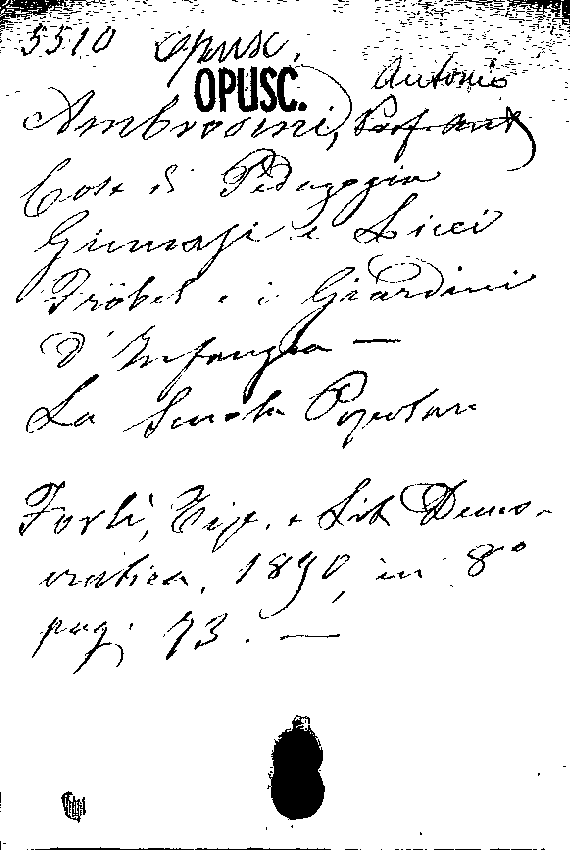 5510 Opusc.
OPUSC.
Antonio
Ambrosini, Prof. Ant
Cose di Pedagogia
Ginnasi e Licei
Fröbel e i Giardini
d'Infanzia —
La Scuola Popolare
Forlì, Tip. e Lit. Demo-
cratica, 1890, in 8°
pag. 73. —